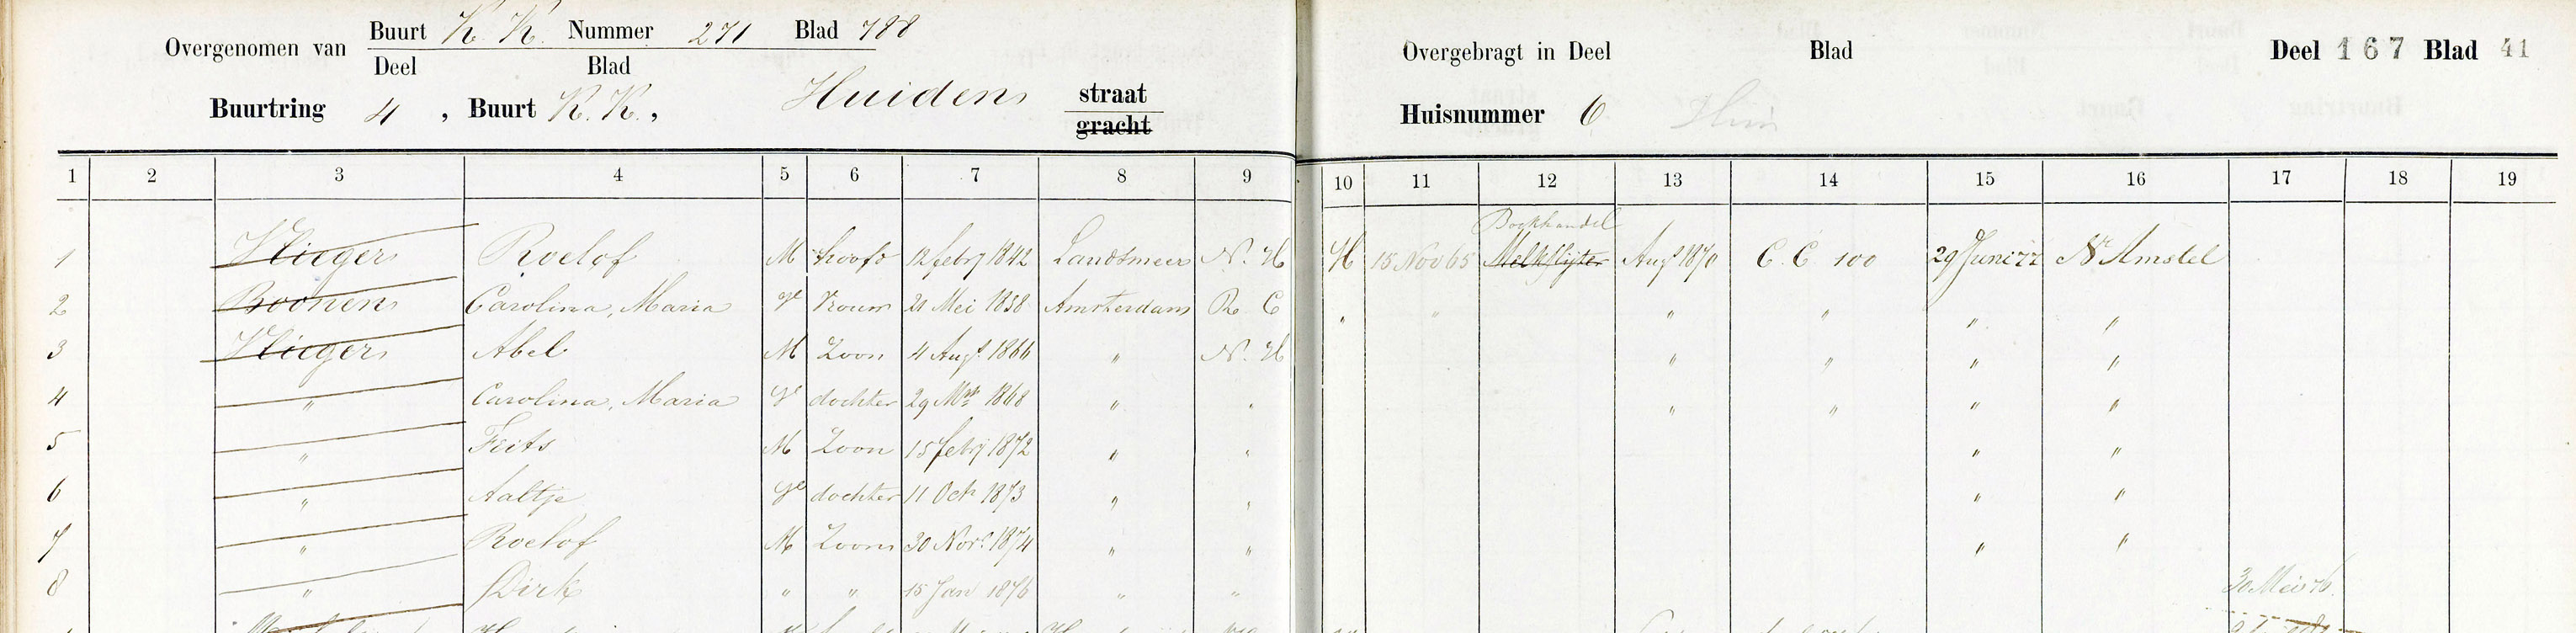 Overgenomen van Buurt K. K. Nummer 271 Blad 788
Deel Blad
Buurtring 4, Buurt K. K., Huidens straat
gracht
Overgebragt in Deel Blad Deel 167 Blad 41
Huisnummer 6
1 2 3 4 5 6 7 8 9 10 11 12 13 14 15 16 17 18 19
Boekhandel
1 Vliegers Roelof M hoofd 12 febrij 1842 Landsmeer N. H H 15 Nov 65 Melkslijter Augt 1870 C. C. 100 29 Juni 77 Nr Amstel
2 Boonen Carolina, Maria Vl Vrouw 21 Mei 1838 Amsterdam R. C " " " " " "
3 Vliegers Abel M Zoon 4 Augt 1866 " N. H " " " "
4 " Carolina, Maria Vl dochter 29 Mrt 1868 " " " " " "
5 " Frits M Zoon 15 febrij 1872 " " " "
6 " Aaltje Vl dochter 11 Oct 1873 " " " "
7 " Roelof M Zoon 30 Nov. 1874 " " " "
8 " Dirk " " 15 Jan 1876 " " 30 Mei 76